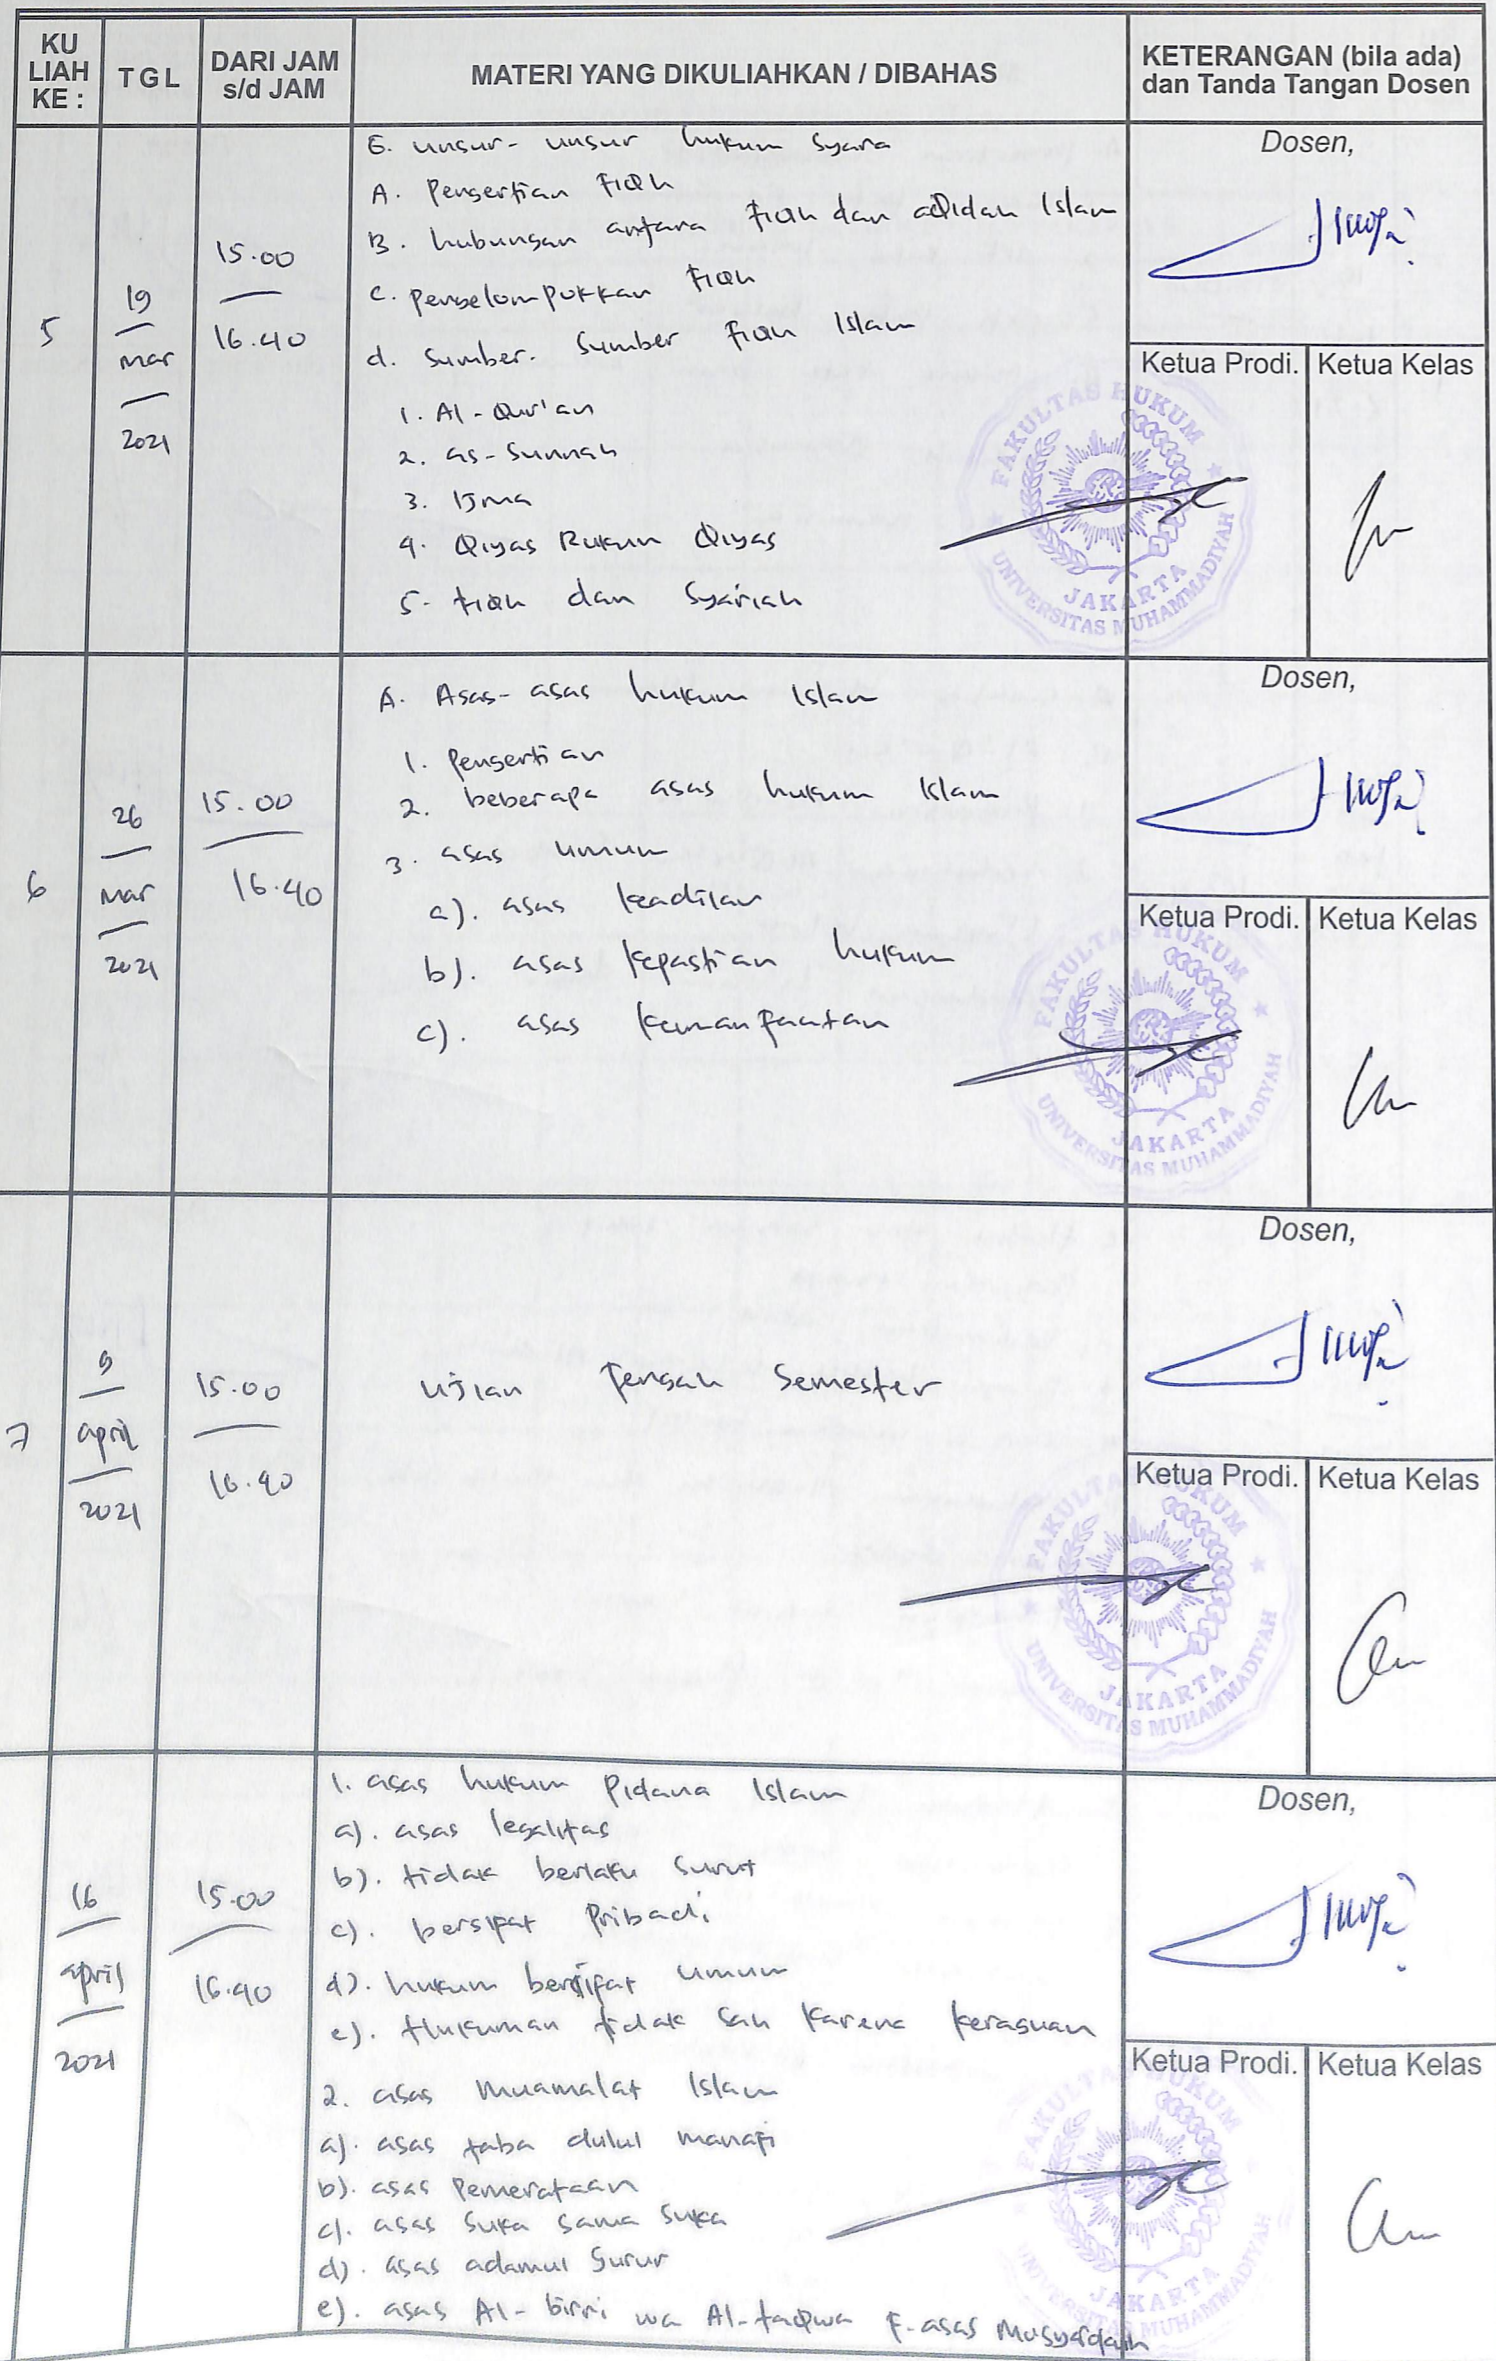 KU LIAH KE :
TGL
DARI JAM s/d JAM
MATERI YANG DIKULIAHKAN / DIBAHAS
KETERANGAN (bila ada) dan Tanda Tangan Dosen
5
19
Mar
2021
15.00
16.40
E. unsur-unsur hukum syara
A. Pengertian Fiqh
B. hubungan antara Fiqh dan aqidah Islam
C. pengelompokkan Fiqh
d. Sumber-Sumber Fiqh Islam
1. Al-Qur'an
2. as-Sunnah
3. Ijma
4. Qiyas Rukun Qiyas
5. Fiqh dan Syariah
Dosen,
Ketua Prodi.
Ketua Kelas
FAKULTAS HUKUM
UNIVERSITAS MUHAMMADIYAH
JAKARTA
6
26
Mar
2021
15.00
16.40
A. Asas-asas hukum Islam
1. Pengertian
2. beberapa asas hukum Islam
3. asas umum
a). asas keadilan
b). asas kepastian hukum
c). asas kemanfaatan
Dosen,
Ketua Prodi.
Ketua Kelas
FAKULTAS HUKUM
UNIVERSITAS MUHAMMADIYAH
JAKARTA
7
9
april
2021
15.00
16.40
Ujian Tengah Semester
Dosen,
Ketua Prodi.
Ketua Kelas
FAKULTAS HUKUM
UNIVERSITAS MUHAMMADIYAH
JAKARTA
16
april
2021
15.00
16.40
1. asas hukum Pidana Islam
a). asas legalitas
b). tidak berlaku surut
c). bersifat Pribadi
d). hukum bersifat umum
e). Hukuman tidak sah karena keraguan
2. asas Muamalat Islam
a). asas taba dulul manafi
b). asas Pemerataan
c). asas suka sama suka
d). asas adamul Gurur
e). asas Al-birri wa Al-taqwa F. asas Musyarakah
Dosen,
Ketua Prodi.
Ketua Kelas
FAKULTAS HUKUM
UNIVERSITAS MUHAMMADIYAH
JAKARTA